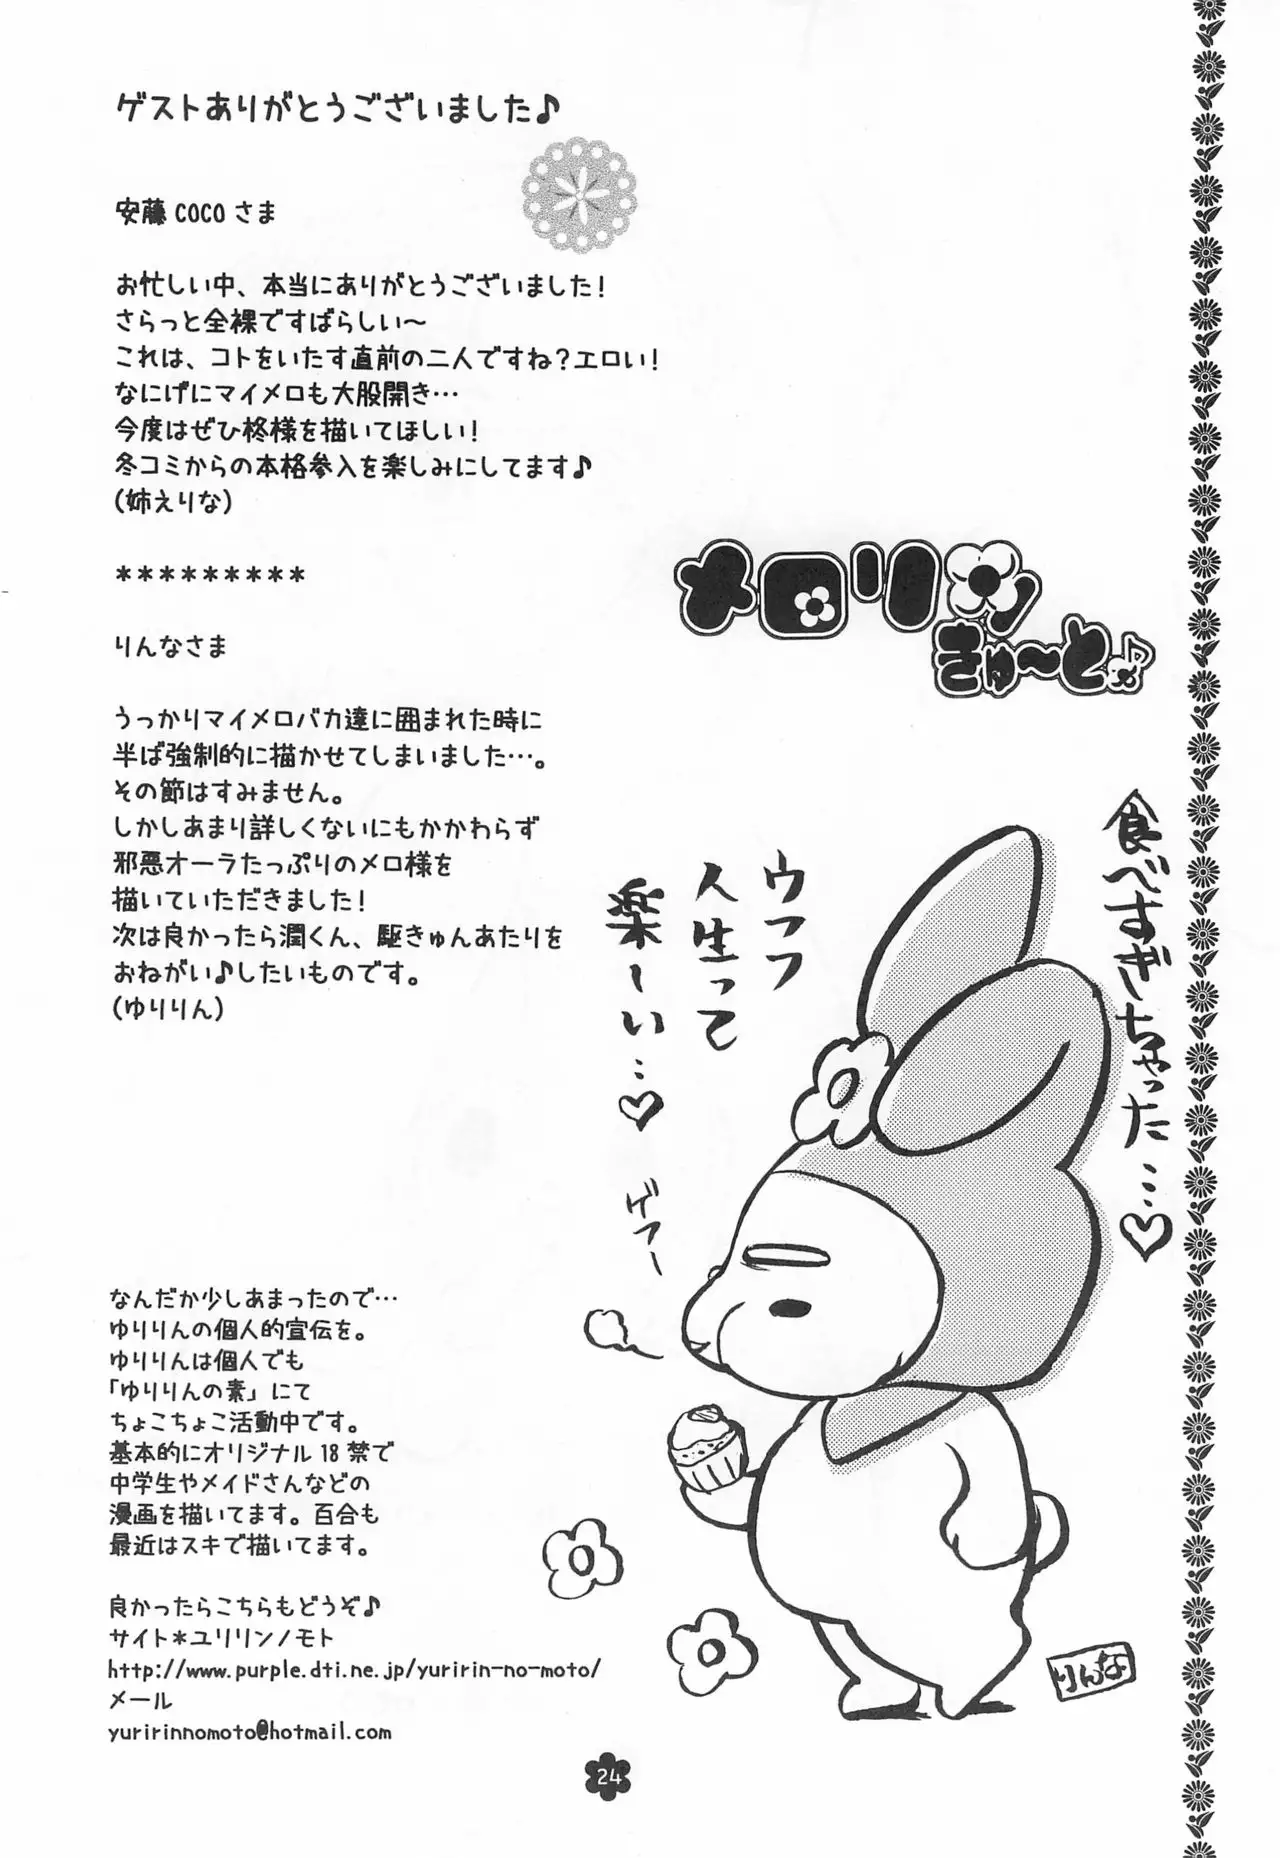 ゲストありがとうございました♪
安藤COCOさま
お忙しい中、本当にありがとうございました！
さらっと全裸ですばらしい〜
これは、コトをいたす直前の二人ですね？エロい！
なにげにマイメロも大股開き…
今度はぜひ柊様を描いてほしい！
冬コミからの本格参入を楽しみにしてます♪
(姉えりな)
*********
りんなさま
うっかりマイメロバカ達に囲まれた時に
半ば強制的に描かせてしまいました…。
その節はすみません。
しかしあまり詳しくないにもかかわらず
邪悪オーラたっぷりのメロ様を
描いていただきました！
次は良かったら潤くん、駆きゅんあたりを
おねがい♪したいものです。
(ゆりりん)
メロリン
きゅ〜と♪
食べすぎちゃった…♡
ウフフ
人生って
楽しい…♡
げふー
りんな
なんだか少しあまったので…
ゆりりんの個人的宣伝を。
ゆりりんは個人でも
「ゆりりんの素」にて
ちょこちょこ活動中です。
基本的にオリジナル18禁で
中学生やメイドさんなどの
漫画を描いてます。百合も
最近はスキで描いてます。
良かったらこちらもどうぞ♪
サイト＊ユリリンノモト
http://www.purple.dti.ne.jp/yuririn-no-moto/
メール
yuririnnomoto@hotmail.com
24